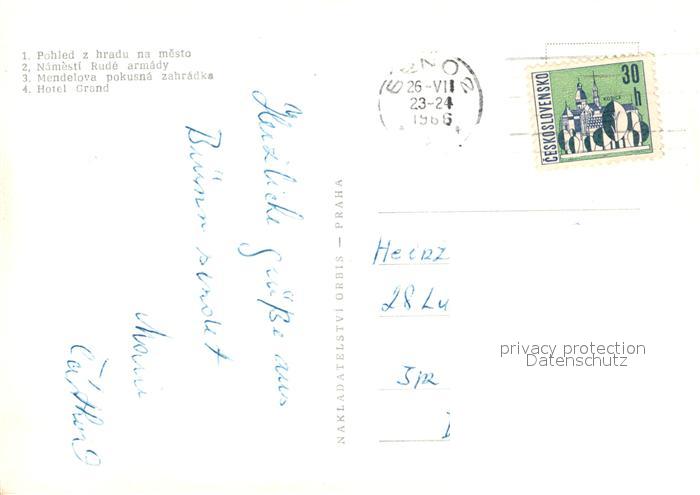 1. Pohled z hradu na město
2. Náměstí Rudé armády
3. Mendelova pokusná zahrádka
4. Hotel Grand
BRNO 2
26-VII
23-24
1966
ČESKOSLOVENSKO
30
h
KOŠICE
Herzliche Grüße aus
Brünn sendet
NAKLADATELSTVÍ ORBIS — PRAHA
Heinz
28 Lu
privacy protection
Datenschutz